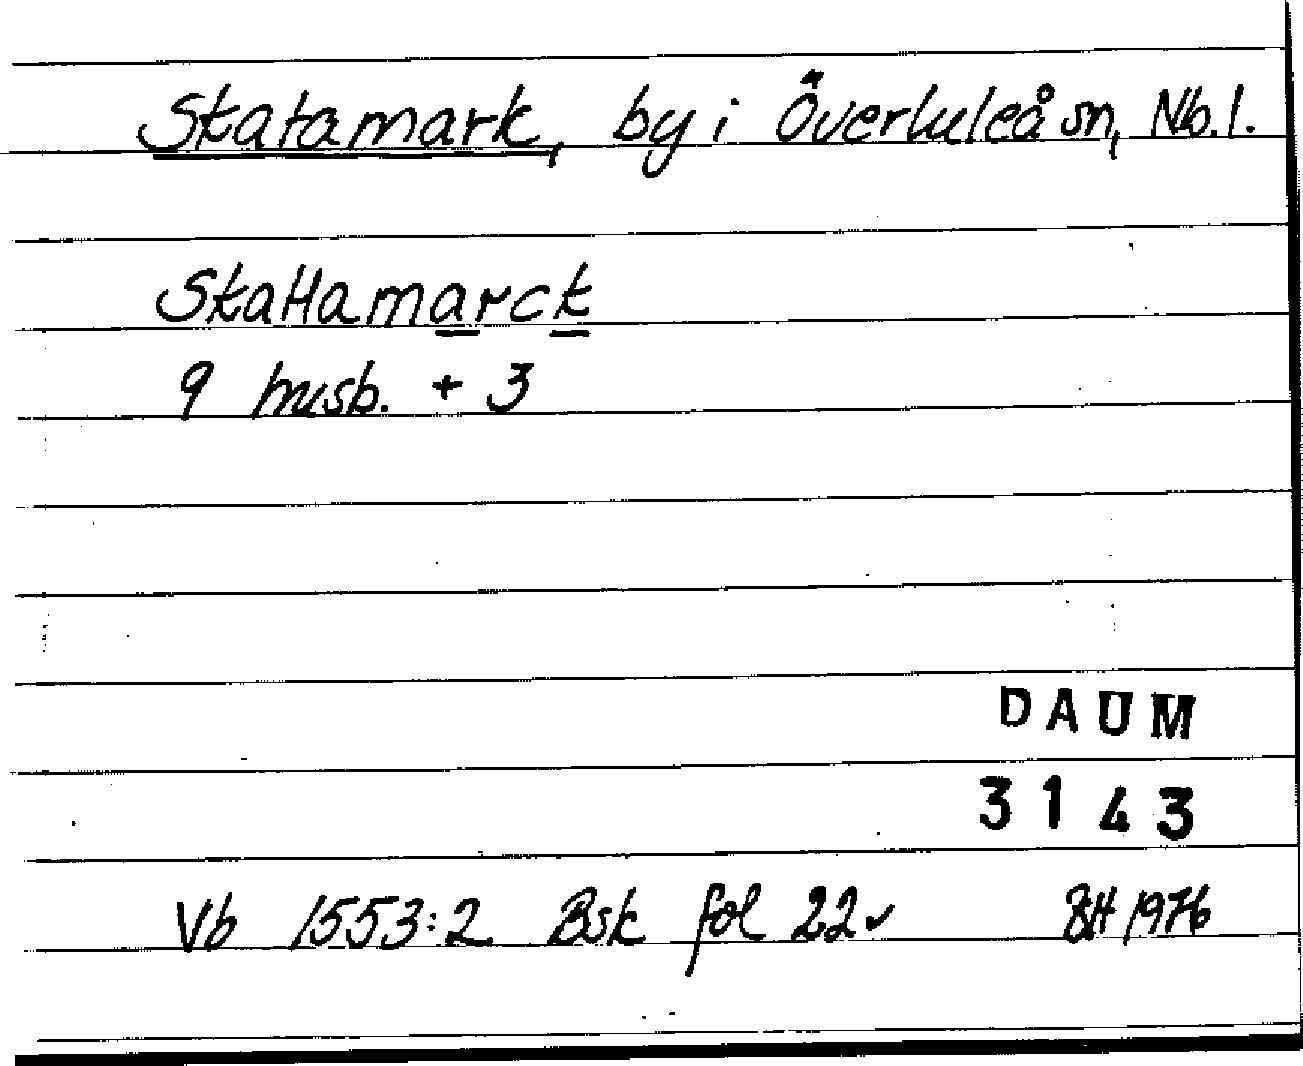 Skatamark, by i Överluleå sn, Nb.l.
Skattamarck
9 husb. + 3
DAUM
3143
Vb 1553:2 Bsk fol 22v
1976